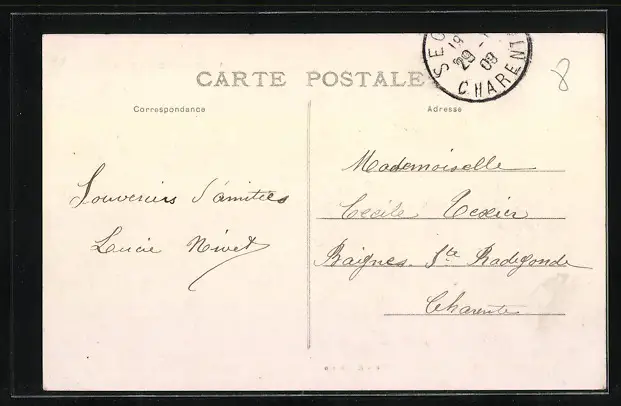 CARTE POSTALE
SEG
19
29
09
CHARENT
8
Correspondance
Adresse
Souvenirs d'amitiés
Lucie Nivet
Mademoiselle
Cécile Texier
Baignes. Ste Radegonde
Charente